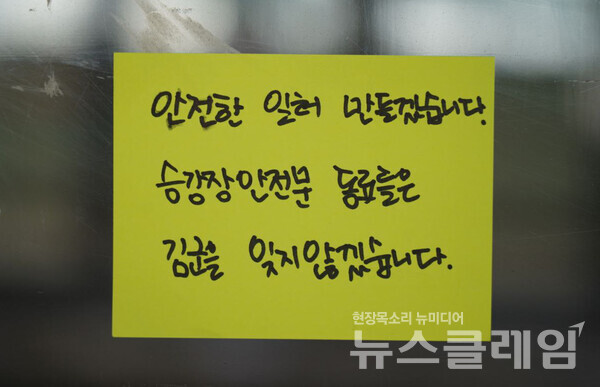 안전한 일터 만들겠습니다.
승강장안전문 동료들은
김군을 잊지않겠습니다.
현장목소리 뉴미디어
뉴스클레임